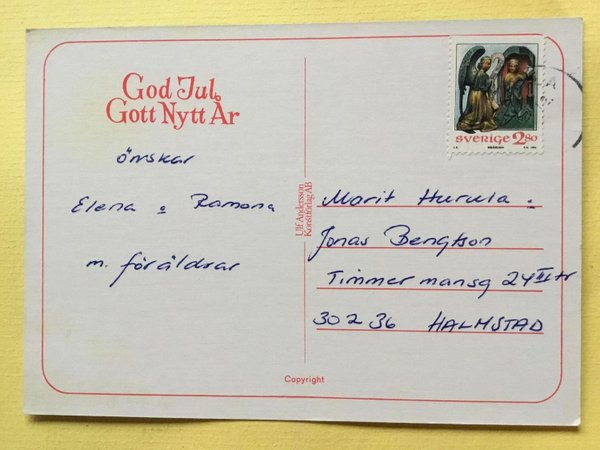 God Jul
Gott Nytt År
önskar
Elena o Ramona
m. föräldrar
Ulf Andersson
Konstförlag AB
SVERIGE 2.80
Marit Hurula o
Jonas Bengtson
Timmermansg 24 III tr
302 36 HALMSTAD
Copyright